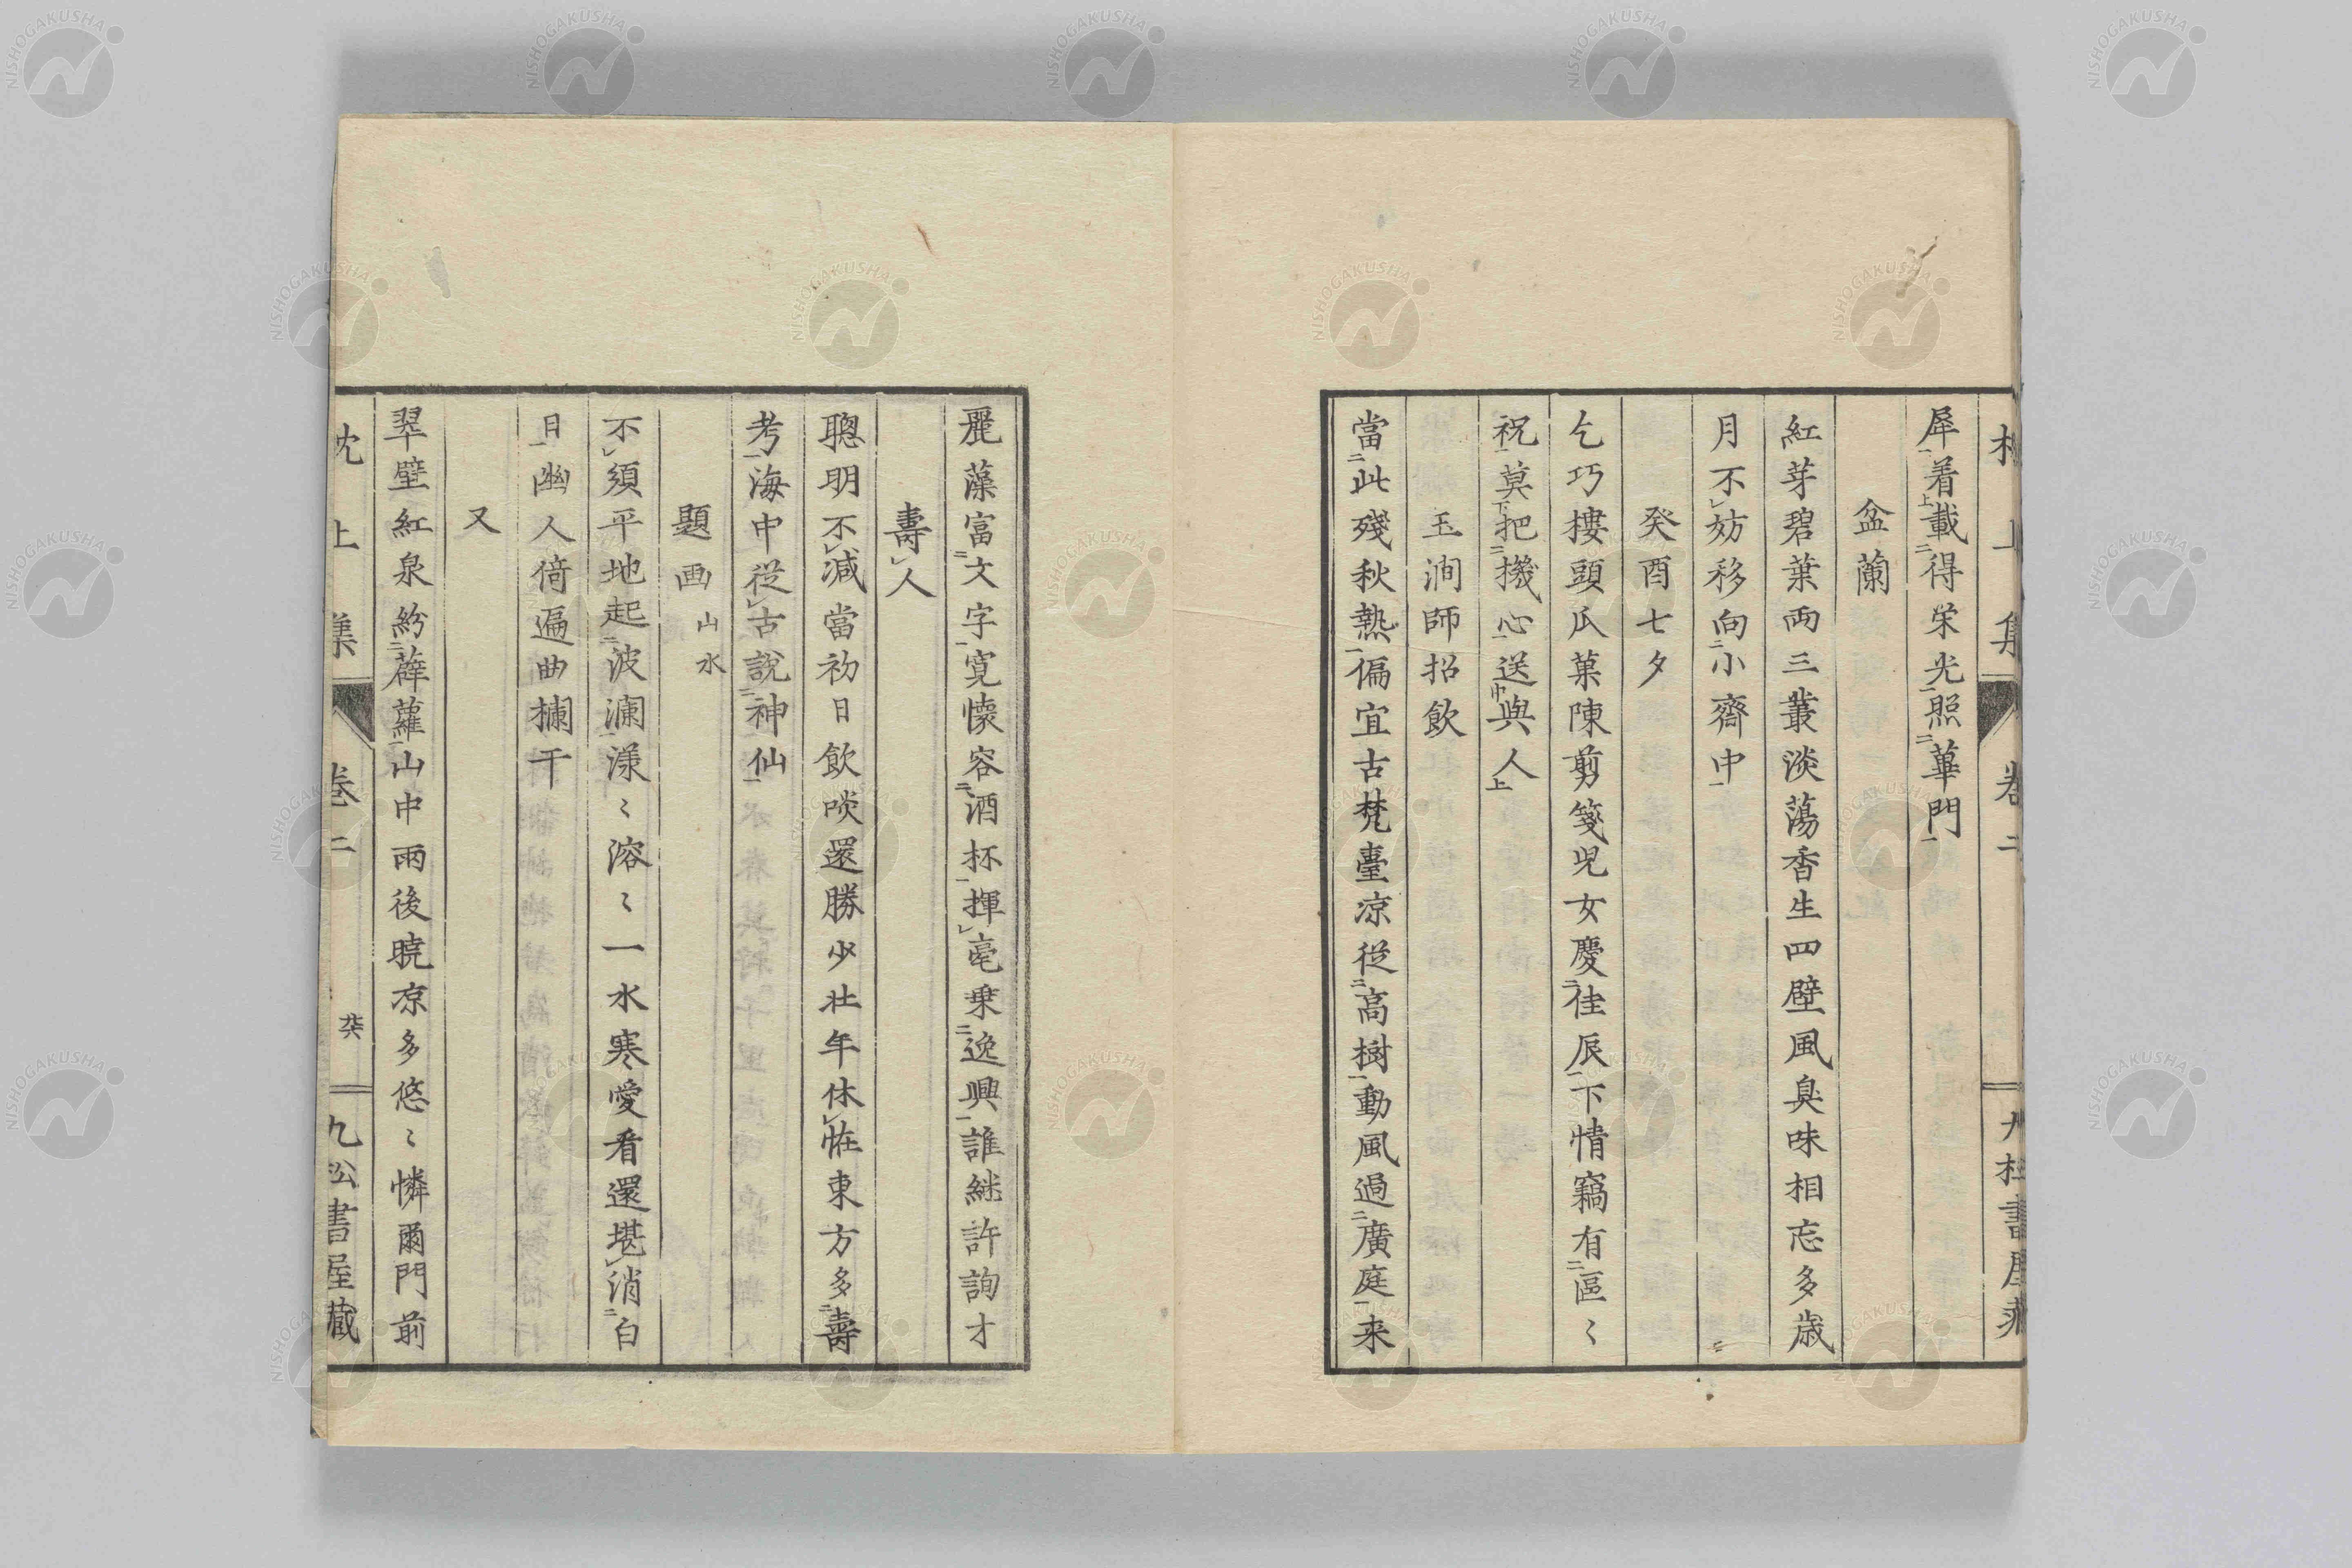 犀着載得栄光照蓽門
盆蘭
紅芽碧葉両三叢淡蕩香生四壁風臭味相忘多歳
月不妨移向小齋中
癸酉七夕
乞巧樓頭瓜菓陳剪箋児女慶佳辰下情竊有區〻
祝莫把機心送與人
玉澗師招飲
當此殘秋熱偏宜古梵臺凉従高樹動風過廣庭来
麗藻富文字寛懐容酒杯揮毫乗逸興誰継許詢才
壽人
聰明不減當初日飲啖還勝少壮年休恠東方多壽
考海中従古説神仙
題画 山水
不須平地起波瀾漾〻溶〻一水寒愛看還堪消白
日幽人倚遍曲欄干
又
翠壁紅泉紛薜蘿山中雨後暁凉多悠〻憐爾門前
枕上集 巻二 九松書屋蔵
NISHOGAKUSHA